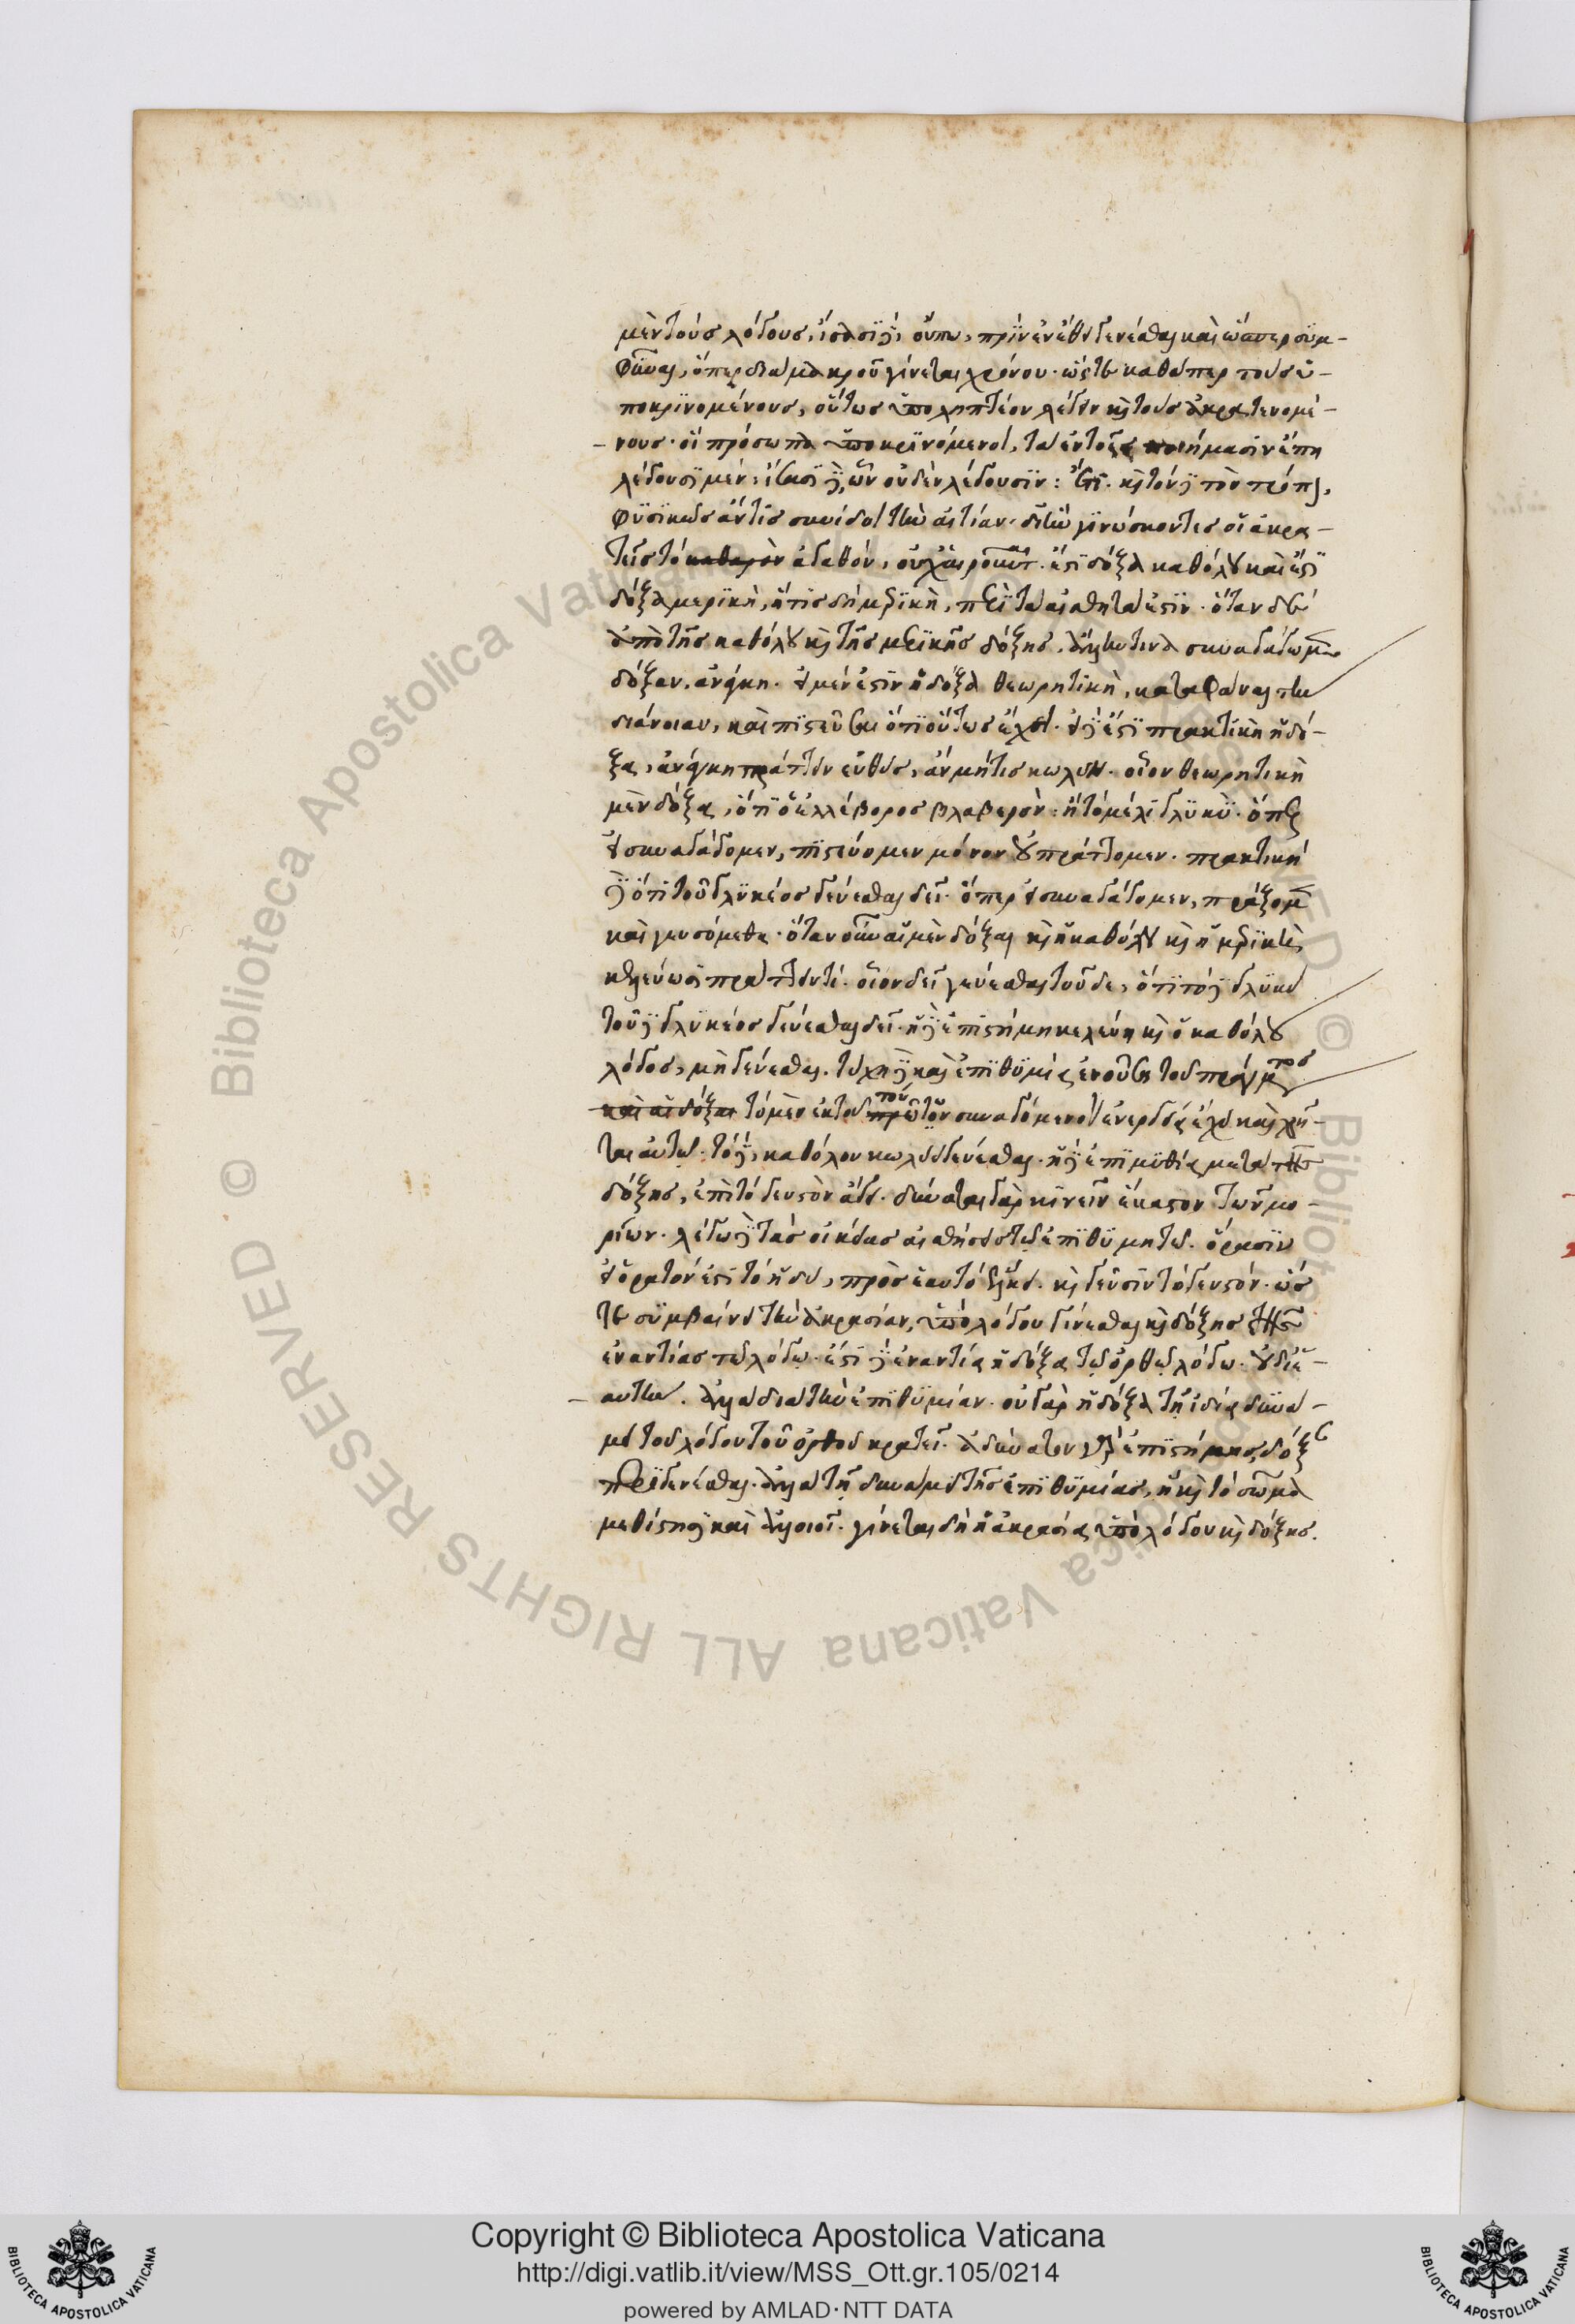 μὲν τοὺς λόγους, ἴσασι δὲ, οὔπω, πρὶν ἐν ἔθει γενέσθαι καὶ ὥσπερ συμ-
φῦναι, ὅπερ διὰ μακροῦ γίνεται χρόνου. ὥστε καθάπερ τοὺς ὑ-
ποκρινομένους, οὕτως ὑποληπτέον λέγειν καὶ τοὺς ἀκρατευομέ-
νους. οἱ πρόσωπα ὑποκρινόμενοι, τὰ ἐν τοῖς ποιήμασιν ἔπη
λέγουσι μέν, ἴσασι δὲ, ὧν οὐδὲν λέγουσιν: ἔτι. καὶ τόνδε τὸν τρόπον,
φυσικῶς ἄν τις συνίδοι τὴν αἰτίαν, δι' ἣν γινώσκοντες οἱ ἀκρα-
τεῖς τὸ ἀγαθόν, οὐχ αἱροῦνται. ἔστι δόξα καθόλου καὶ ἔστι
δόξα μερικὴ, ἥτις δὴ μερικὴ, περὶ τὰ αἰσθητά ἐστιν. ὅταν δὲ
ἀπὸ τῆς καθόλου καὶ τῆς μερικῆς δόξης, ἄλλην τινὰ συναγάγωμεν
δόξαν, ἀνάγκη. εἰ μέν ἐστιν ἡ δόξα θεωρητικὴ, καταφάναι τὴν
διάνοιαν, καὶ πιστεῦσαι ὅτι οὕτως ἔχει. εἰ δὲ ἐστι πρακτικὴ ἡ δό-
ξα, ἀνάγκη πράττειν εὐθὺς, ἂν μήτις κωλύῃ. οἷον θεωρητικὴ
μὲν δόξα, ὅτι ὁ ἐλλέβορος βλαβερὸν: ἢ τὸ μέλι γλυκὺ. ὅπερ
εἰ συναγάγομεν, πιστεύομεν μόνον οὐ πράττομεν. πρακτικὴ
δὲ ὅτι τοῦ γλυκέος γεύεσθαι δεῖ. ὅπερ εἰ συναγάγομεν, πράξομεν
καὶ γευσόμεθα. ὅταν οὖν αἱ μὲν δόξαι καὶ ἡ καθόλου καὶ ἡ μερικὴ,
κελεύωσι πράττειν τί. οἷον δεῖ γεύεσθαι τοῦδε, ὅτι τόδε γλυκὺ
τοῦ δὲ γλυκέος γεύεσθαι δεῖ. ἡ δὲ ἐπιστήμη κελεύῃ καὶ ὁ καθόλου
λόγος, μὴ γεύεσθαι. τύχῃ δὲ καὶ ἐπιθυμία ἐνοῦσα τοῦ πράγματος
τὸ μὲν ἐκ τούτων συναγόμενον ἐνεργείᾳ ἔχει καὶ χρῆ-
ται αὐτῷ. τὸ δὲ, καθόλου κωλύει γεύεσθαι. ἡ δὲ ἐπιμυθία μετὰ τῆς
δόξης, ἐπὶ τὸ γευστὸν ἄγει. δύναται γὰρ κινεῖν ἕκαστον τῶν μο-
ρίων. λέγω δὲ τὰς οἰκείας αἰσθήσεις τῷ ἐπιθυμητῷ. ὅρασιν
εἰ ὁρατόν ἐστι τὸ ἡδὺ, πρὸς ἑαυτὸ ἕλκει. καὶ γεῦσιν τὸ γευστόν. ὥσ
τε συμβαίνει τὴν ἀκρασίαν, ὑπὸ λόγου γίνεσθαι καὶ δόξης τῆς
ἐναντίας τῷ λόγῳ. ἔστι δὲ ἐναντία ἡ δόξα τῷ ὀρθῷ λόγῳ. οὐ δι' ἑ-
αυτὴν. ἀλλὰ διὰ τὴν ἐπιθυμίαν. οὐ γὰρ ἡ δόξα τῇ ἰδίᾳ δυνά-
μει τοῦ λόγου τοῦ ὀρθοῦ κρατεῖ. ἀδύνατον γὰρ ἐπιστήμης δόξαν
περιγενέσθαι. ἀλλὰ τῇ δυνάμει τῆς ἐπιθυμίας, ἣ καὶ τὸ σῶμα
μεθίστησι καὶ ἀλλοιοῖ. γίνεται δὴ ἡ ἀκρασία ὑπὸ λόγου καὶ δόξης.
Copyright © Biblioteca Apostolica Vaticana
http://digi.vatlib.it/view/MSS_Ott.gr.105/0214
powered by AMLAD·NTT DATA
BIBLIOTECA APOSTOLICA VATICANA
BIBLIOTECA APOSTOLICA VATICANA
© Biblioteca Apostolica Vaticana ALL RIGHTS RESERVED © Biblioteca Apostolica Vaticana ALL RIGHTS RESERVED